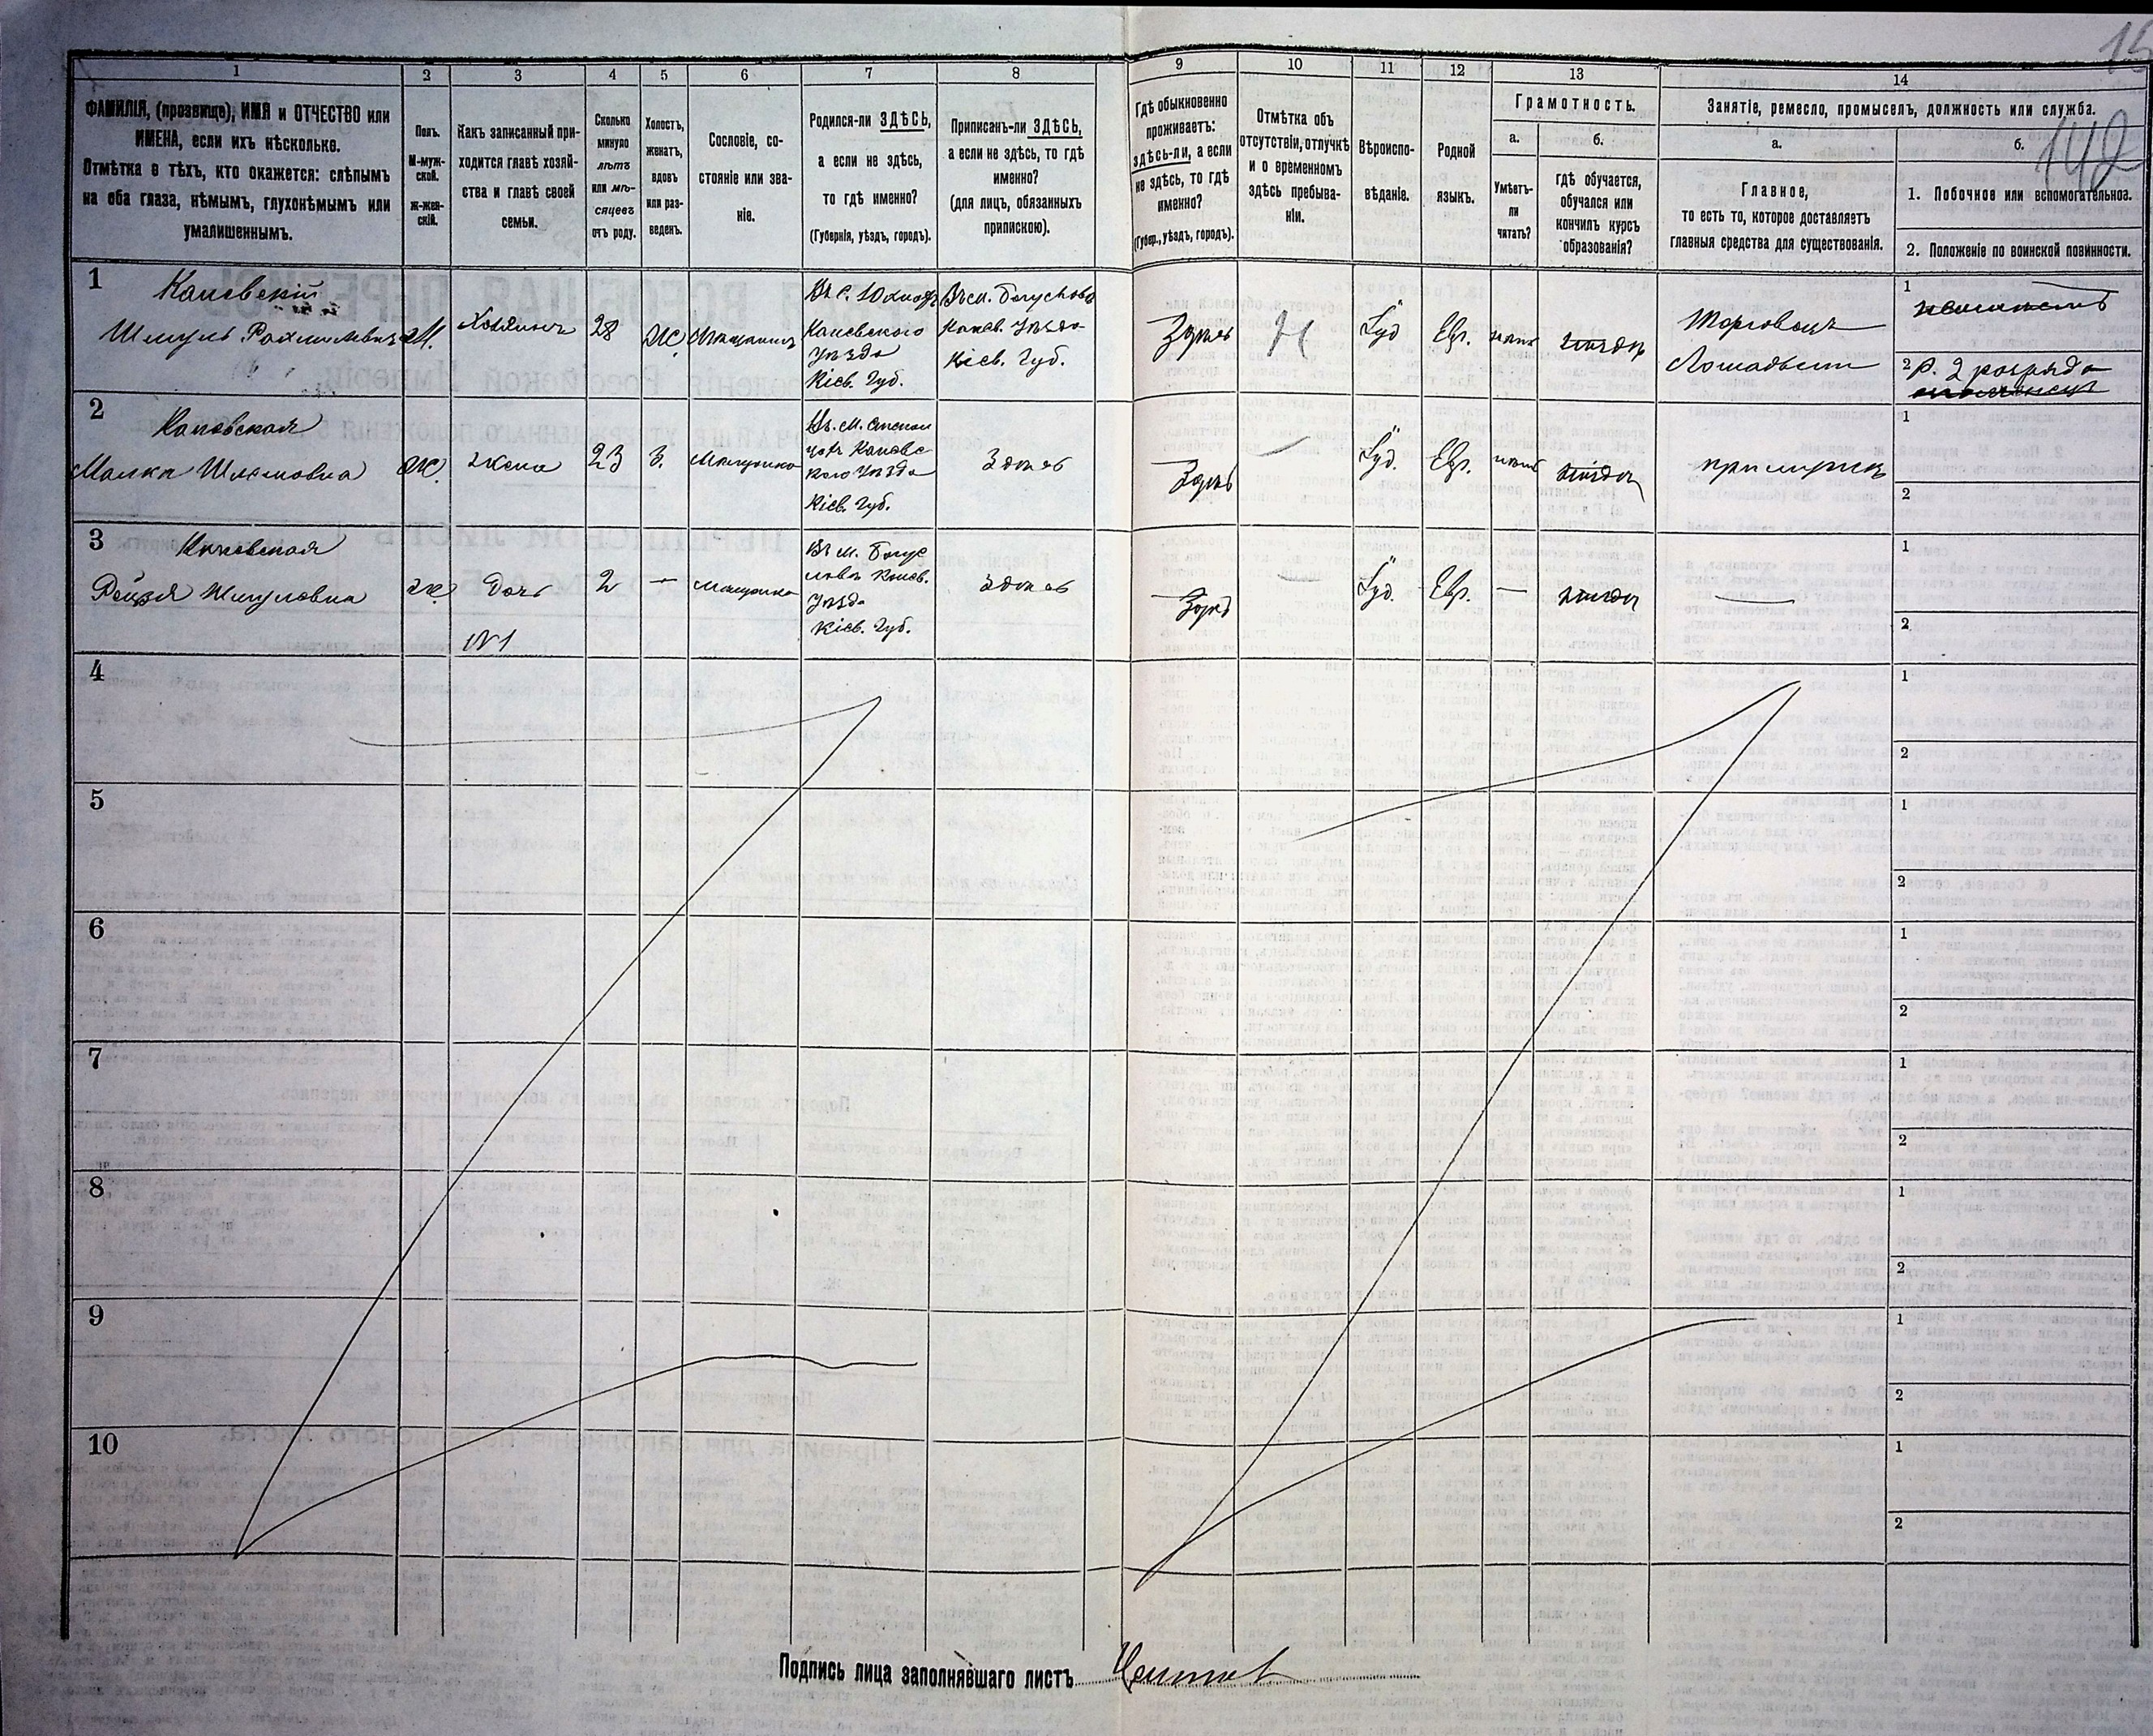 15
142
1
2
3
4
5
6
7
8
9
10
11
12
13
14
ФАМИЛІЯ, (прозвище), ИМЯ и ОТЧЕСТВО или
ИМЕНА, если ихъ нѣсколько.
Отмѣтка о тѣхъ, кто окажется: слѣпымъ
на оба глаза, нѣмымъ, глухонѣмымъ или
умалишеннымъ.
Полъ.
М-муж-
ской.
Ж-жен-
скій.
Какъ записанный при-
ходится главѣ хозяй-
ства и главѣ своей
семьи.
Сколько
минуло
лѣтъ
или мѣ-
сяцевъ
отъ роду.
Холостъ,
женатъ,
вдовъ
или раз-
веденъ.
Сословіе, со-
стояніе или зва-
ніе.
Родился-ли ЗДѢСЬ,
а если не здѣсь,
то гдѣ именно?
(Губернія, уѣздъ, городъ).
Приписанъ-ли ЗДѢСЬ,
а если не здѣсь, то гдѣ
именно?
(для лицъ, обязанныхъ
припискою).
Гдѣ обыкновенно
проживаетъ:
здѣсь-ли, а если
не здѣсь, то гдѣ
именно?
(Губер., уѣздъ, городъ).
Отмѣтка объ
отсутствіи, отлучкѣ
и о временномъ
здѣсь пребыва-
ніи.
Вѣроиспо-
вѣданіе.
Родной
языкъ.
Грамотность.
а.
Умѣетъ-
ли
читать?
б.
гдѣ обучается,
обучался или
кончилъ курсъ
образованія?
Занятіе, ремесло, промыселъ, должность или служба.
а.
Главное,
то есть то, которое доставляетъ
главныя средства для существованія.
б.
1. Побочное или вспомогательное.
2. Положеніе по воинской повинности.
1
Каневскій
Шмуль Рахмилевичъ
М.
Хозяинъ
28
Ж.
Мѣщанинъ
Каневского
Уѣзда
Кіев. Губ.
Въ м. Богуславѣ
Канев. Уѣзда
Кіев. Губ.
Здѣсь
Н
Іуд
Евр.
нѣтъ
Торговецъ
Лошадьми
1
2 Р. 2 разряда
2
Каневская
Малка Шлемовна
Ж.
жена
23
З.
Мѣщанка
Кіев. Губ.
Здѣсь
Іуд.
Евр.
нѣтъ
при мужѣ
1
2
3
Каневская
Рейзя Шмулевна
Ж.
Дочь
№1
2
—
Мѣщанка
Въ м. Богус
лавѣ Канев.
Уѣзда
Кіев. Губ.
Іуд.
Евр.
—
—
1
2
4
1
2
5
1
2
6
1
2
7
1
2
8
1
2
9
1
2
10
1
2
Подпись лица заполнявшаго листъ